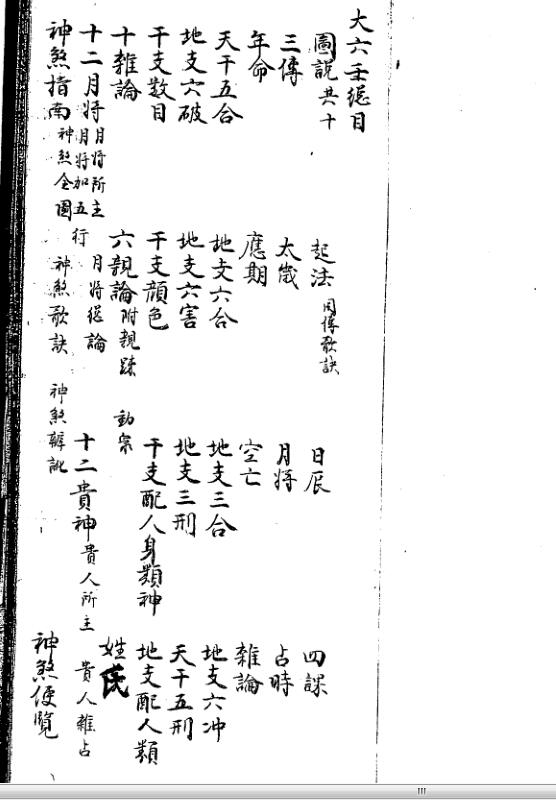 大六壬總目
圖説共十 起法用傳歌訣 日辰 四課
三傳 太歲 月將 占時
年命 應期 空亡 雜論
天干五合 地支六合 地支三合 地支六冲
地支六破 地支六害 地支三刑 天干五刑
干支数目 干支顔色 干支配人身類神 地支配人類
十雜論 六親論附親疎 動宗 姓氏
十二月將月將所主月將加五行 月將總論 十二貴神貴人所主 貴人雜占
神煞指南神煞全圖 神煞歌訣 神煞辯訛 神煞便覽